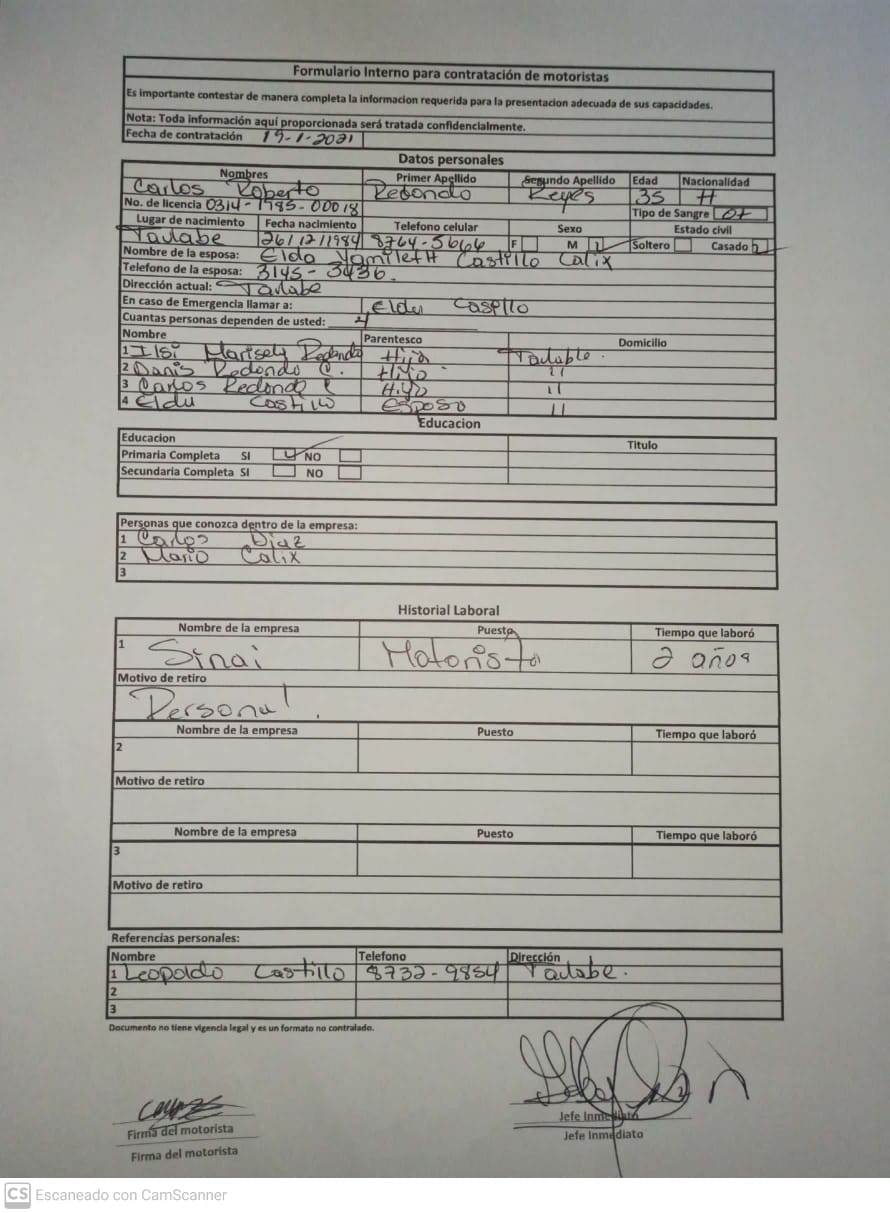 Formulario Interno para contratación de motoristas
Es importante contestar de manera completa la informacion requerida para la presentacion adecuada de sus capacidades.
Nota: Toda información aquí proporcionada será tratada confidencialmente.
Fecha de contratación 19-1-2021
Datos personales
Nombres Primer Apellido Segundo Apellido Edad Nacionalidad
Carlos Roberto Redondo Reyes 35 H
No. de licencia 0314-1985-00018 Tipo de Sangre O+
Lugar de nacimiento Fecha nacimiento Telefono celular Sexo Estado civil
Taulabe 26/12/1984 8764-5664 F M Soltero Casado
Nombre de la esposa: Elda Yamileth Castillo Calix
Telefono de la esposa: 3145-3436.
Dirección actual: Taulabe
En caso de Emergencia llamar a: Elda
Cuantas personas dependen de usted: 4
Nombre Parentesco Domicilio
1 Ilsi Marisely Redondo Hija Taulable.
2 Danis Redondo C. Hijo 11
3 Carlos Redondo C Hijo 11
4 Elda Castillo Esposa 11
Educacion
Educacion Titulo
Primaria Completa SI NO
Secundaria Completa SI NO
Personas que conozca dentro de la empresa:
1 Carlos Diaz
2 Mario Calix
3
Historial Laboral
Nombre de la empresa Puesto Tiempo que laboró
1 Sinai Motorista 2 años
Motivo de retiro
Personal.
Nombre de la empresa Puesto Tiempo que laboró
2
Motivo de retiro
Nombre de la empresa Puesto Tiempo que laboró
3
Motivo de retiro
Referencias personales:
Nombre Telefono Dirección
1 Leopoldo Castillo 8732-9854 Taulabe.
2
3
Documento no tiene vigencia legal y es un formato no contralado.
Firma del motorista Jefe Inmediato
Firma del motorista Jefe Inmediato
CS Escaneado con CamScanner